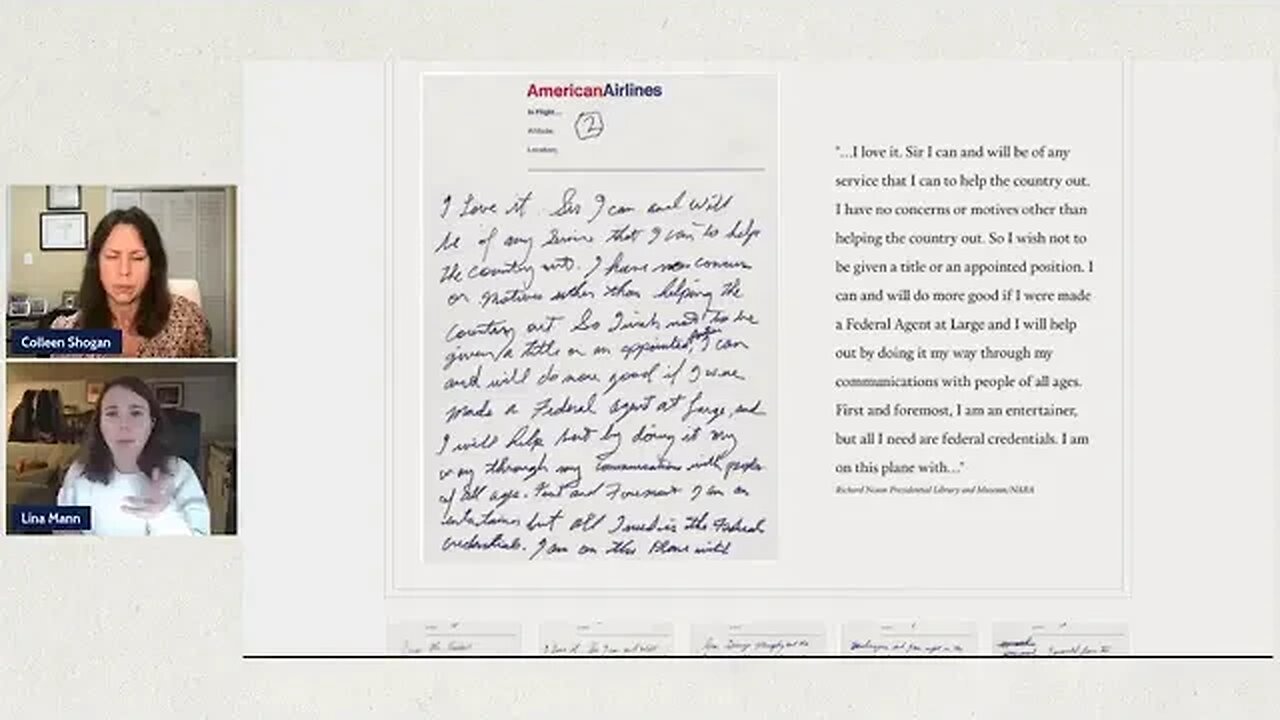 AmericanAirlines
In Flight...
Altitude;
Location;
2
I Love it. Sir I can and will
be of any Service that I can to help
the country out. I have no concern
or motives other than helping the
country out. So I wish not to be
given a title or an appointed position, I can
and will do more good if I were
made a Federal Agent at Large, and
I will help but by doing it my
way through my communications with people
of all ages. First and Foremost I am an
entertainer but all I need is the Federal
credentials. I am on this Plane with
"...I love it. Sir I can and will be of any
service that I can to help the country out.
I have no concerns or motives other than
helping the country out. So I wish not to
be given a title or an appointed position. I
can and will do more good if I were made
a Federal Agent at Large and I will help
out by doing it my way through my
communications with people of all ages.
First and foremost, I am an entertainer,
but all I need are federal credentials. I am
on this plane with..."
Richard Nixon Presidential Library and Museum/NARA
Colleen Shogan
Lina Mann
Dear Mr. President
I Love it. Sir I can and will
Sen. George Murphy and